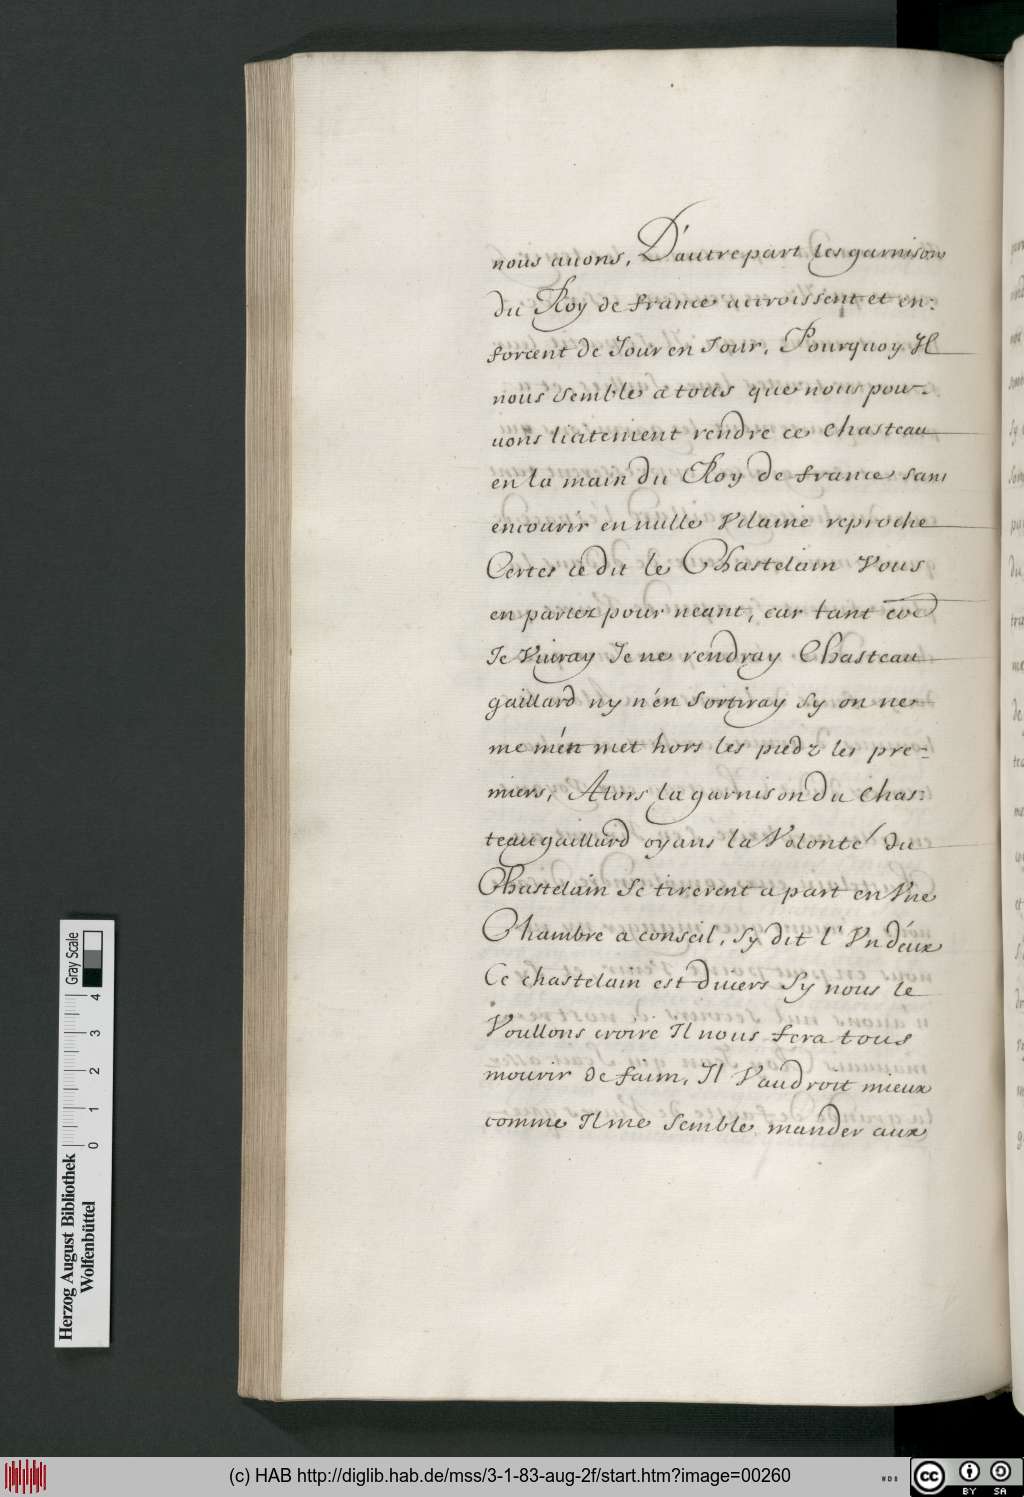 nous auons, D'autre part les garnisons
du Roy de france accroissent et en-
forcent de Jour en Jour, Pourquoy Il
nous semble a tous que nous pou-
uons licitement rendre ce chasteau
en la main du Roy de france sans
encourir en nulle vilaine reproche
Certes ce dit le Chastelain vous
en parlez pour neant, car tant
Je viuray Je ne rendray Chasteau
gaillard ny n'én sortiray sy on ne
me m'én met hors les piedz les pre-
miers, Alors la garnison du chas-
teau gaillard oyans la volonté du
Chastelain se tirerent a part en vne
Chambre a conseil, sy dit l'vn d'éux
Ce chastelain est diuers sy nous le
voullons croire Il nous fera tous
mourir de faim, Il vaudroit mieux
comme Il me semble mander aux
Herzog August Bibliothek
Wolfenbüttel
Gray Scale
0 1 2 3 4
(c) HAB http://diglib.hab.de/mss/3-1-83-aug-2f/start.htm?image=00260
WDB
cc BY SA